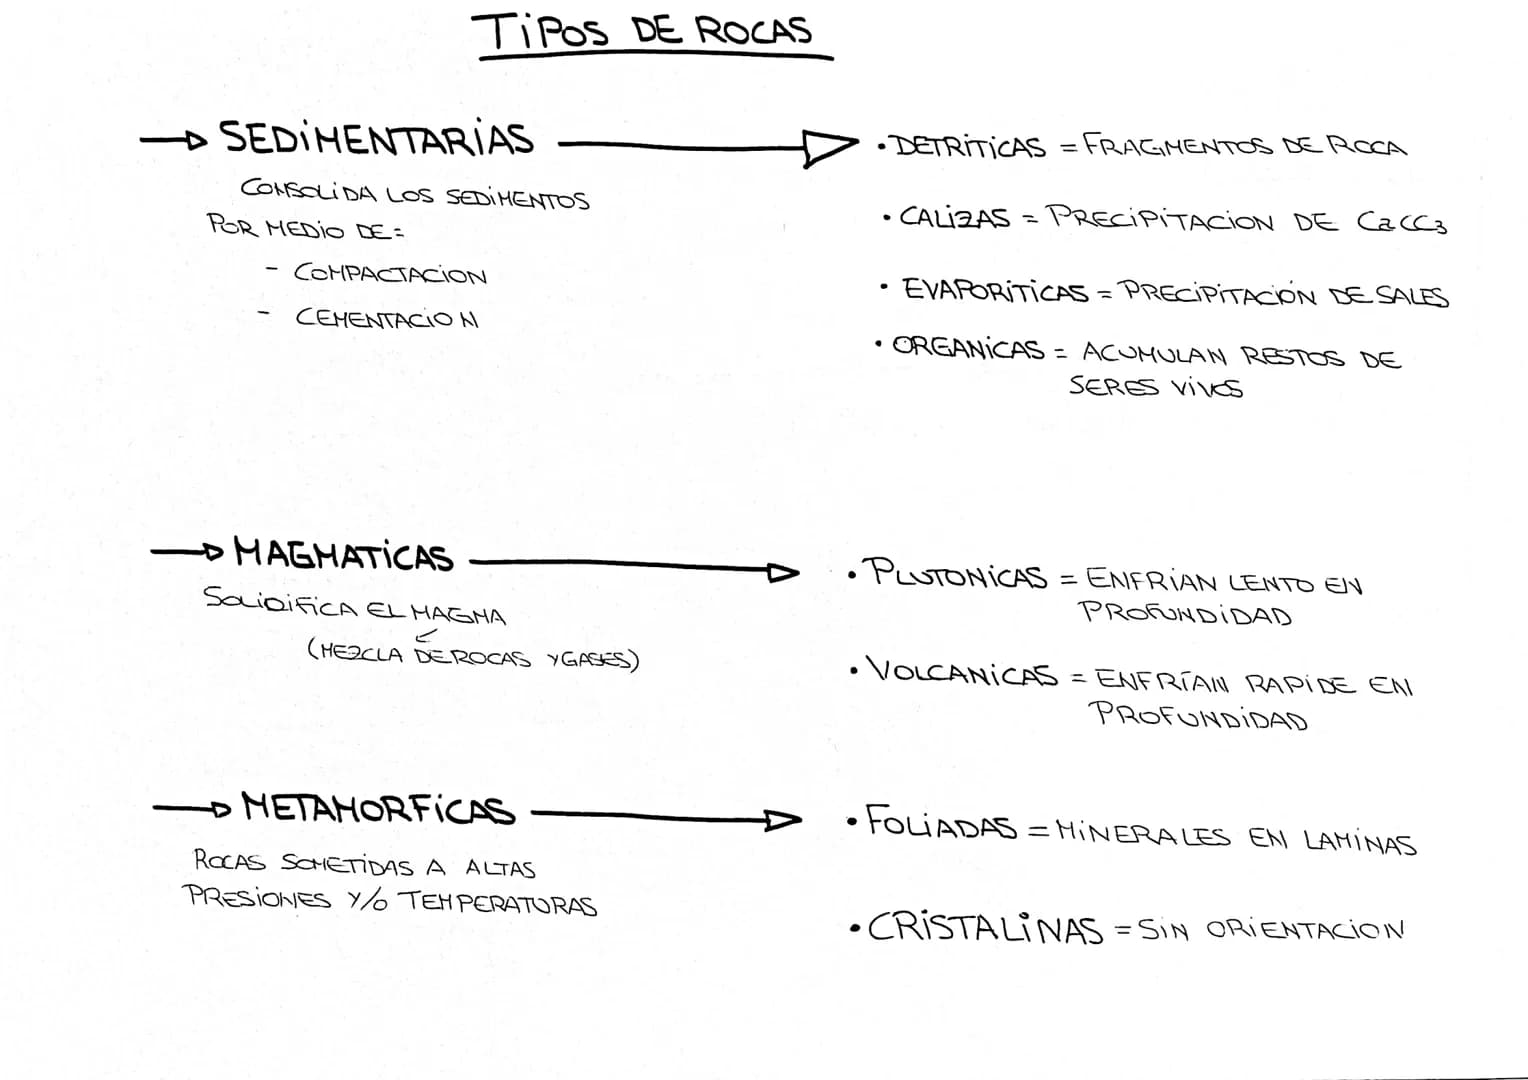 TiPOS DE ROCAS
SEDiMENTARiAS
CONSOLiDA LOS SEDiMENTOS
POR MEDiO DE:
- COMPACTACiON
- CEMENTACiON
• DETRiTiCAS = FRAGMENTOS DE ROCA
• CALiZAS = PRECiPiTACiON DE CaCO3
• EVAPORiTiCAS = PRECiPiTACiÓN DE SALES
• ORGANiCAS = ACUMULAN RESTOS DE
SERES ViVOS
MAGMATiCAS
SOLiDiFiCA EL MAGMA
(MEZCLA DE ROCAS Y GASES)
• PLUTONiCAS = ENFRÍAN LENTO EN
PROFUNDiDAD
• VOLCANiCAS = ENFRÍAN RAPiDE EN
PROFUNDiDAD
METAMORFiCAS
ROCAS SOMETiDAS A ALTAS
PRESiONES Y/O TEMPERATURAS
• FOLiADAS = MiNERALES EN LAMiNAS
• CRiSTALiNAS = SiN ORiENTACiON